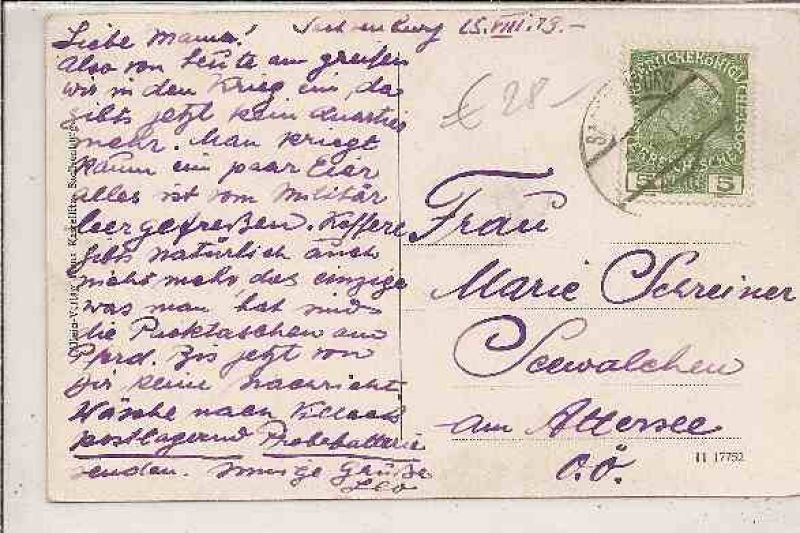 Liebe Mama! Sachsenburg 15.VIII.13.-
Also von heute an greifen
wir in den Krieg ein, da
gibts jetzt kein Quartier
mehr. Man kriegt
kaum ein paar Eier
alles ist vom Militär
leergefreßen. Koffere
gibts natürlich auch
nicht mehr, das einzige
was man hat sind
die Packtaschen am
Pferd. Bis jetzt von
Dir keine Nachricht
Wäsche nach Villach
postlagernd Probebatterie
senden. Innige Grüße
Leo
€ 28-
Frau
Marie Schreiner
Seewalchen
am Attersee
O.Ö.
5 5
11 17752